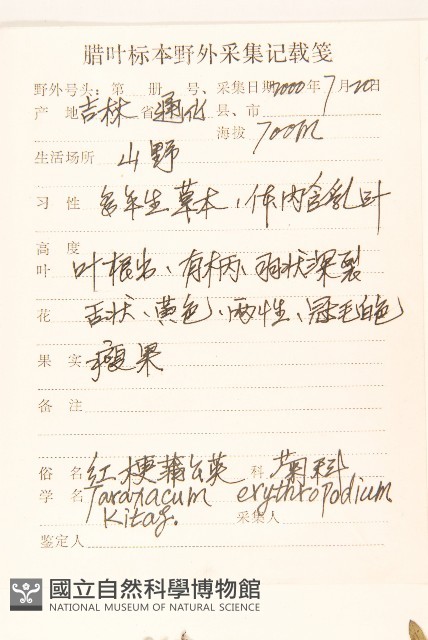 腊叶标本野外采集记载笺
野外号头：第 册 号、采集日期2000年7月20日
产 地 吉林 省 通化 县、市
海拔 700m
生活场所 山野
习 性 多年生草本、体内含乳汁
高 度
叶 叶根出、有柄、羽状深裂
花 舌状、黄色、两性、冠毛白色
果 实 瘦果
备 注
俗 名 红梗蒲公英 科 菊科
学 名 Taraxacum erythropodium
Kitag. 采集人
鉴定人
國立自然科學博物館
NATIONAL MUSEUM OF NATURAL SCIENCE